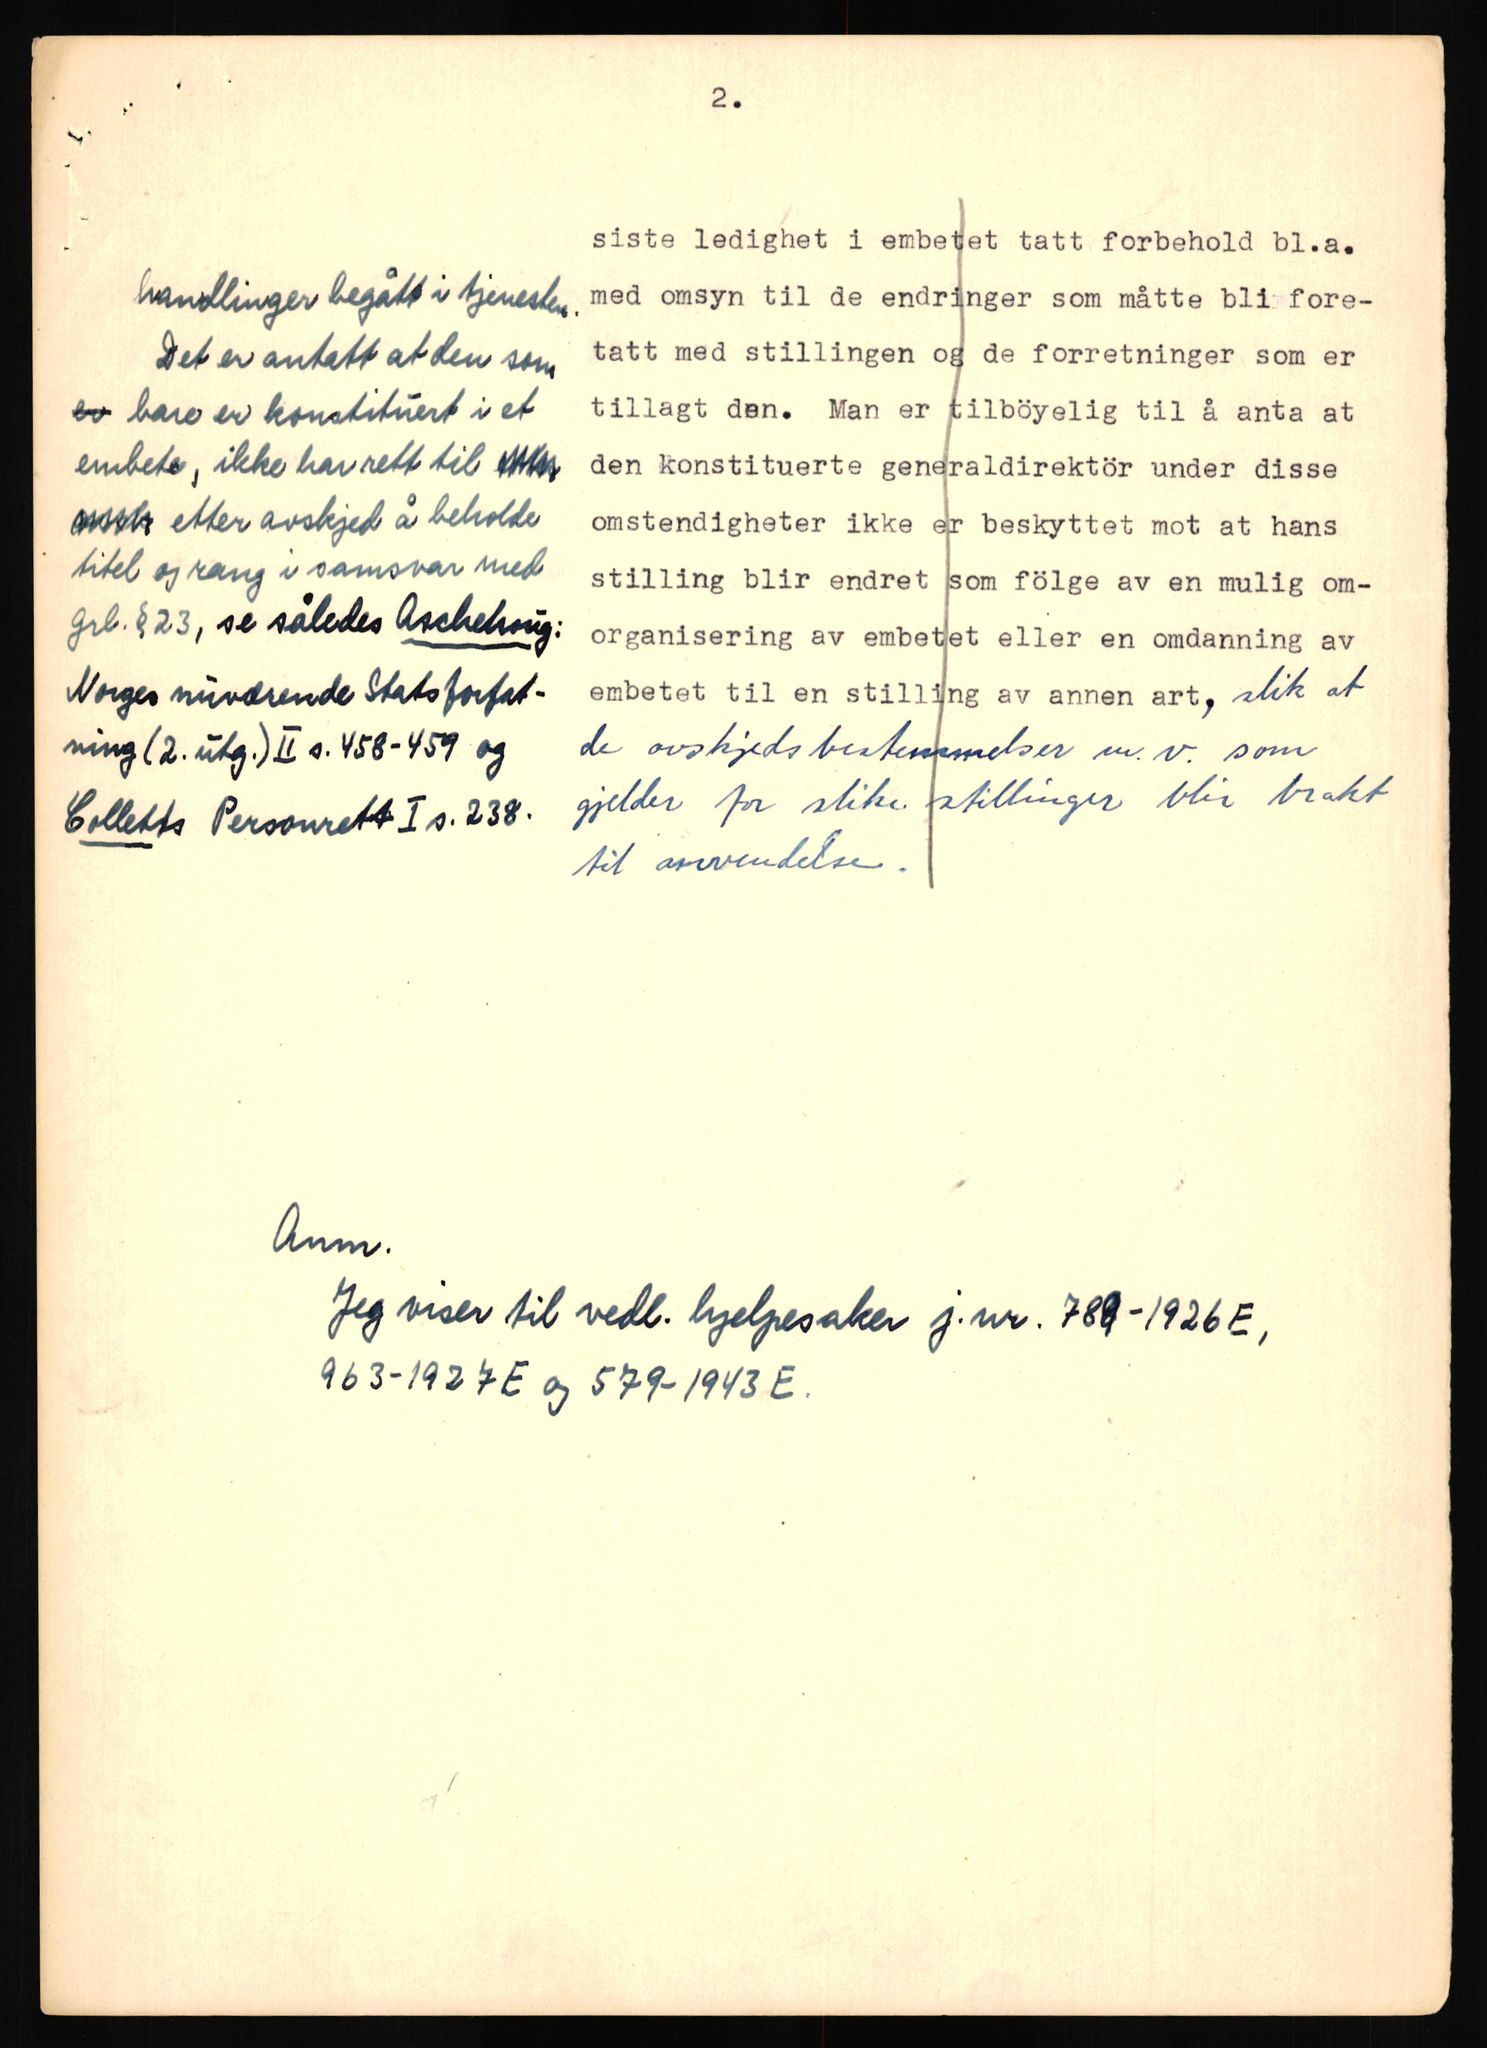 2.
handlinger begått i tjenesten.
Det er antatt at den som
er bare er konstituert i et
embete, ikke har rett til
etter avskjed å beholde
titel og rang i samsvar med
grl. § 23, se således Aschehoug:
Norges nuværende Statsforfat-
ning (2. utg.) II s. 458-459 og
Colletts Personrett I s. 238.
siste ledighet i embetet tatt forbehold bl.a.
med omsyn til de endringer som måtte bli fore-
tatt med stillingen og de forretninger som er
tillagt den. Man er tilböyelig til å anta at
den konstituerte generaldirektör under disse
omstendigheter ikke er beskyttet mot at hans
stilling blir endret som fölge av en mulig om-
organisering av embetet eller en omdanning av
embetet til en stilling av annen art, slik at
de avskjedsbestemmelser m.v. som
gjelder for slike stillinger blir brakt
til anvendelse.
Anm.
Jeg viser til vedl. hjelpesaker j.nr. 789-1926 E,
963-1927 E og 579-1943 E.